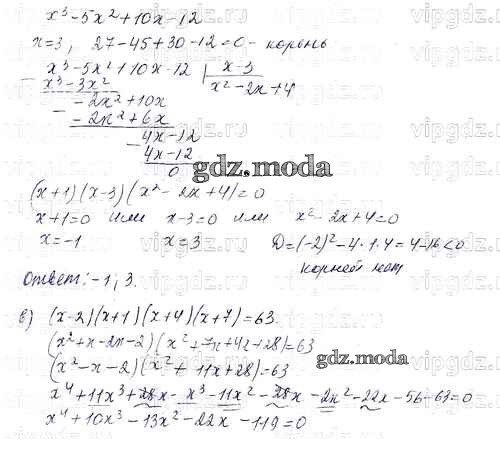 x³-5x²+10x-12
x=3, 27-45+30-12=0 - корень
x³-5x²+10x-12 | x-3
x³-3x² x²-2x+4
-2x²+10x
-2x²+6x
4x-12
4x-12
0
gdz.moda
(x+1)(x-3)(x²-2x+4)=0
x+1=0 или x-3=0 или x²-2x+4=0
x=-1 x=3 D=(-2)²-4·1·4=4-16<0
корней нет
Ответ: -1; 3.
в) (x-2)(x+1)(x+4)(x+7)=63
(x²+x-2x-2)(x²+7x+4x+28)=63
(x²-x-2)(x²+11x+28)=63
gdz.moda
x⁴+11x³+28x-x³-11x²-28x-2x²-22x-56-63=0
x⁴+10x³-13x²-22x-119=0